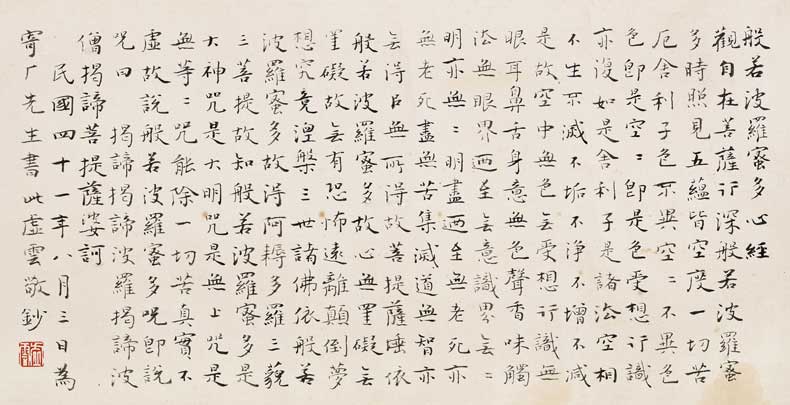 般若波羅蜜多心經
觀自在菩薩行深般若波羅蜜
多時照見五蘊皆空度一切苦
厄舍利子色不異空〻不異色
色即是空〻即是色受想行識
亦復如是舍利子是諸法空相
不生不滅不垢不淨不增不減
是故空中無色无受想行識無
眼耳鼻舌身意無色聲香味觸
法無眼界迺至无意識界无〻
明亦無〻明盡迺至無老死亦
無老死盡無苦集滅道無智亦
无得㠯無所得故菩提薩埵依
般若波羅蜜多故心無罣礙无
罣礙故无有恐怖遠離顛倒夢
想究竟涅槃三世諸佛依般若
波羅蜜多故得阿耨多羅三藐
三菩提故知般若波羅蜜多是
大神咒是大明咒是無上咒是
無等〻咒能除一切苦真實不
虛故說般若波羅蜜多咒即說
咒曰 揭諦揭諦波羅揭諦波
僧揭諦菩提薩婆訶
民國四十一年八月三日為
寄厂先生書此虛雲敬鈔